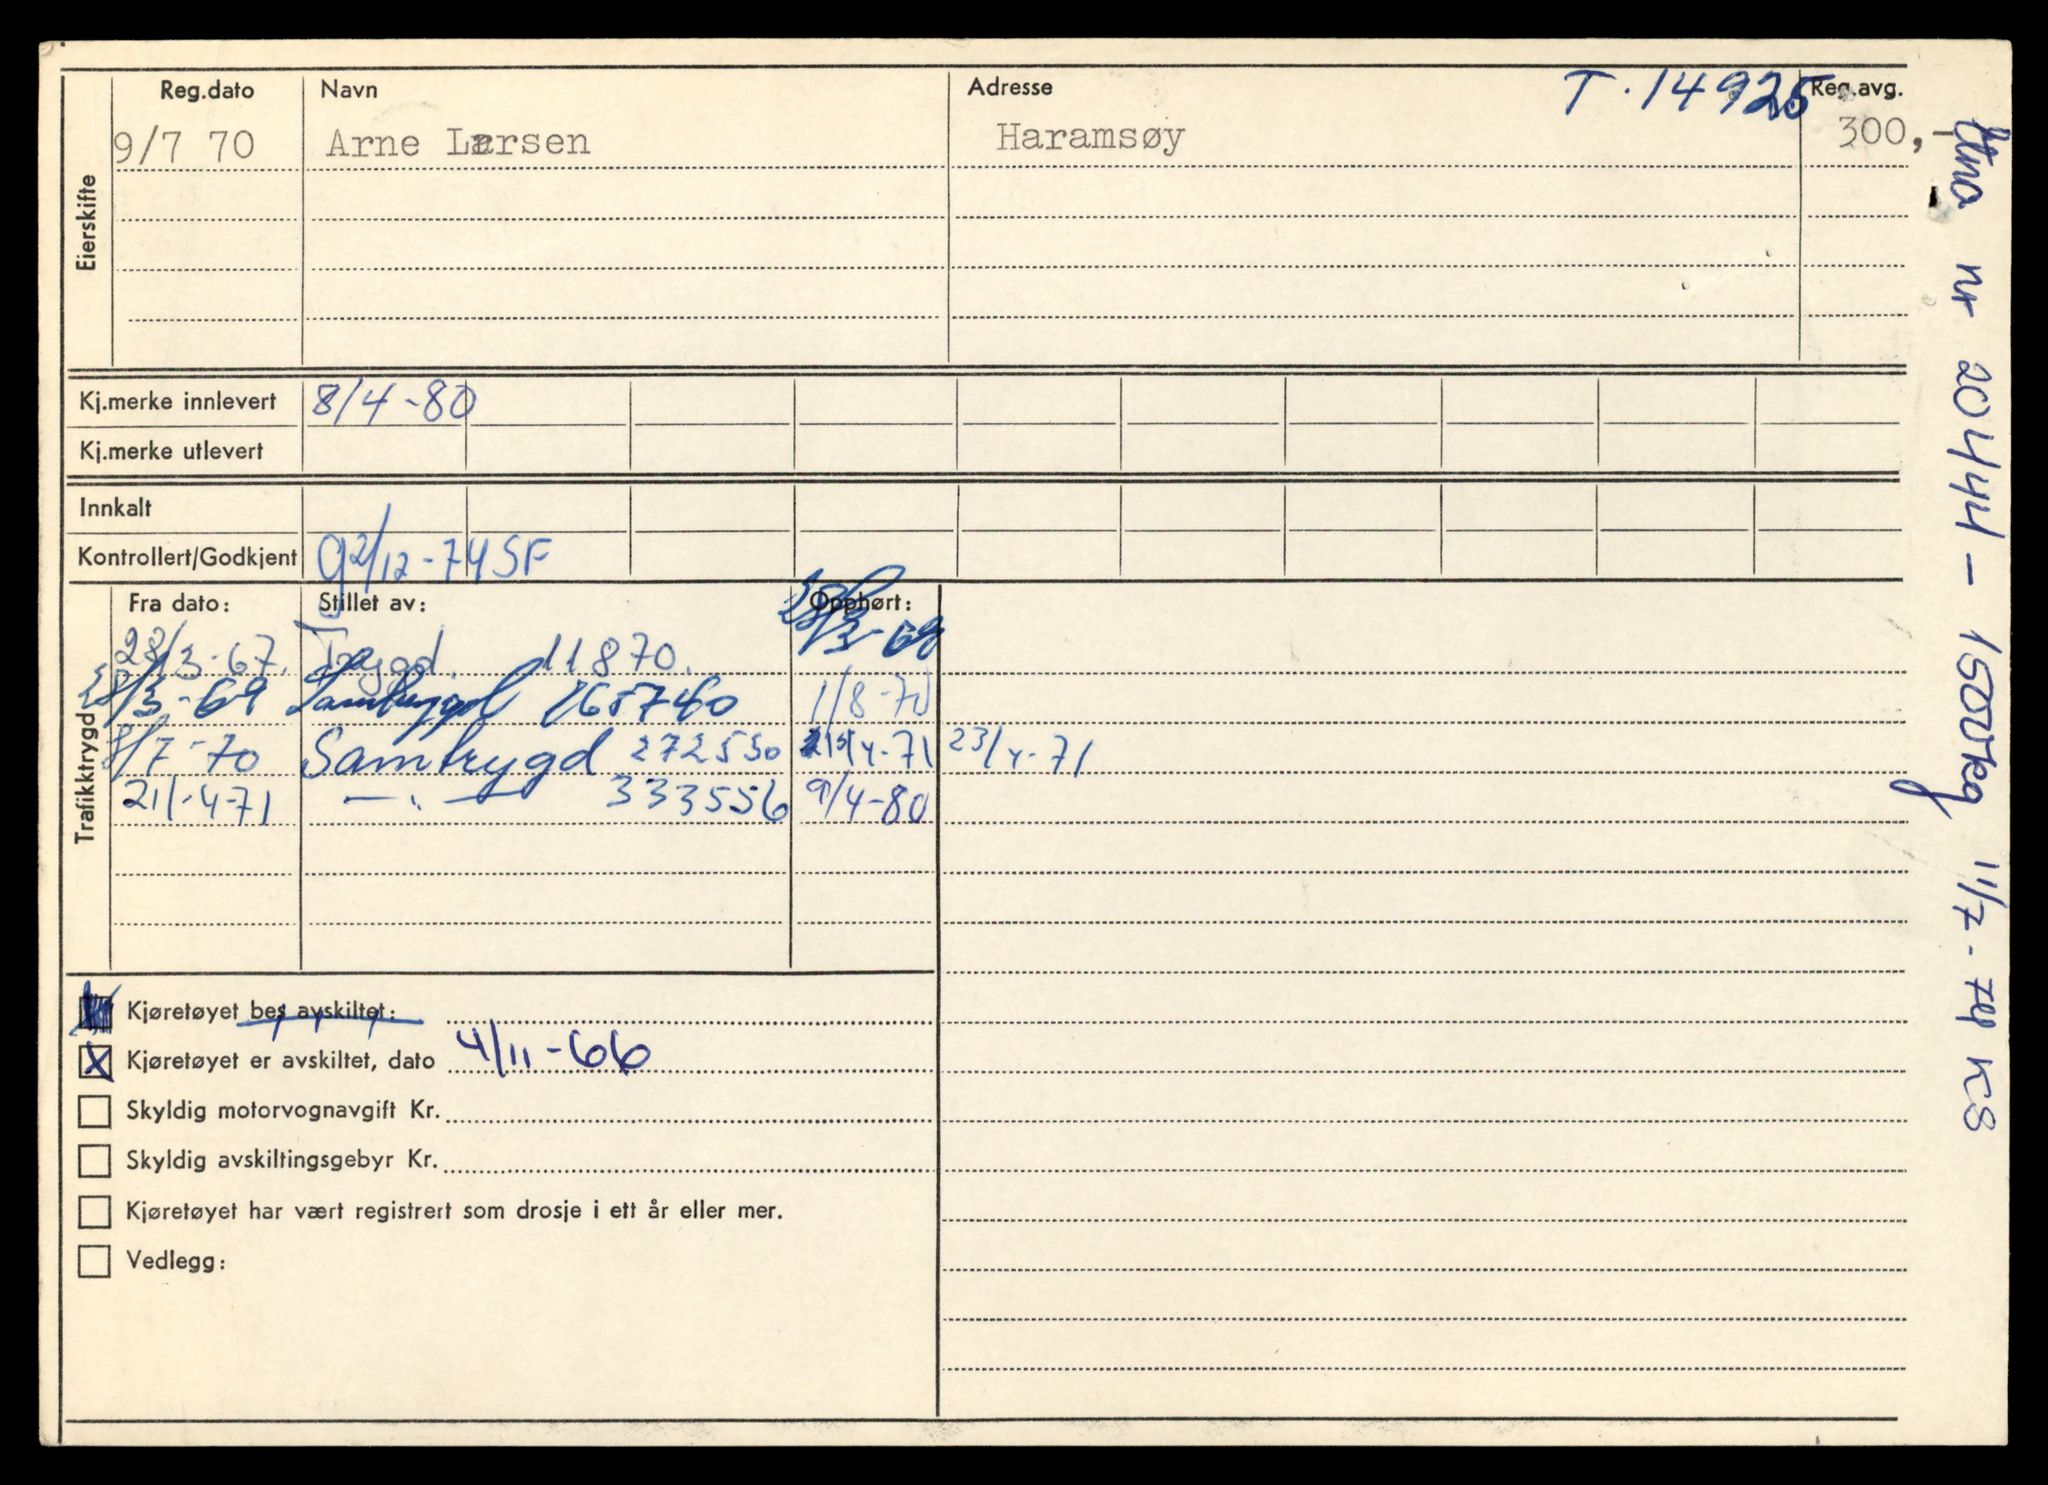 Reg.dato Navn Adresse T.14925 Reg.avg.
9/7 70 Arne Larsen Haramsøy 300,-
Eierskifte
Kj.merke innlevert 8/4-80
Kj.merke utlevert
Innkalt
Kontrollert/Godkjent g 2/12-74 SF
Trafikktrygd
Fra dato: Stillet av: Opphørt:
28/3-67. Trygd. 11870. 28/3-69
28/3-69 Samtrygd 165740 1/8-70
8/7-70 Samtrygd 272530 21/4-71 23/4-71
21/-4-71 —"— 333556 9/4-80
Kjøretøyet bes avskiltet:
X Kjøretøyet er avskiltet, dato 4/11-66
Skyldig motorvognavgift Kr.
Skyldig avskiltingsgebyr Kr.
Kjøretøyet har vært registrert som drosje i ett år eller mer.
Vedlegg:
nr 20444 - 1500kg 11/7-74 KS